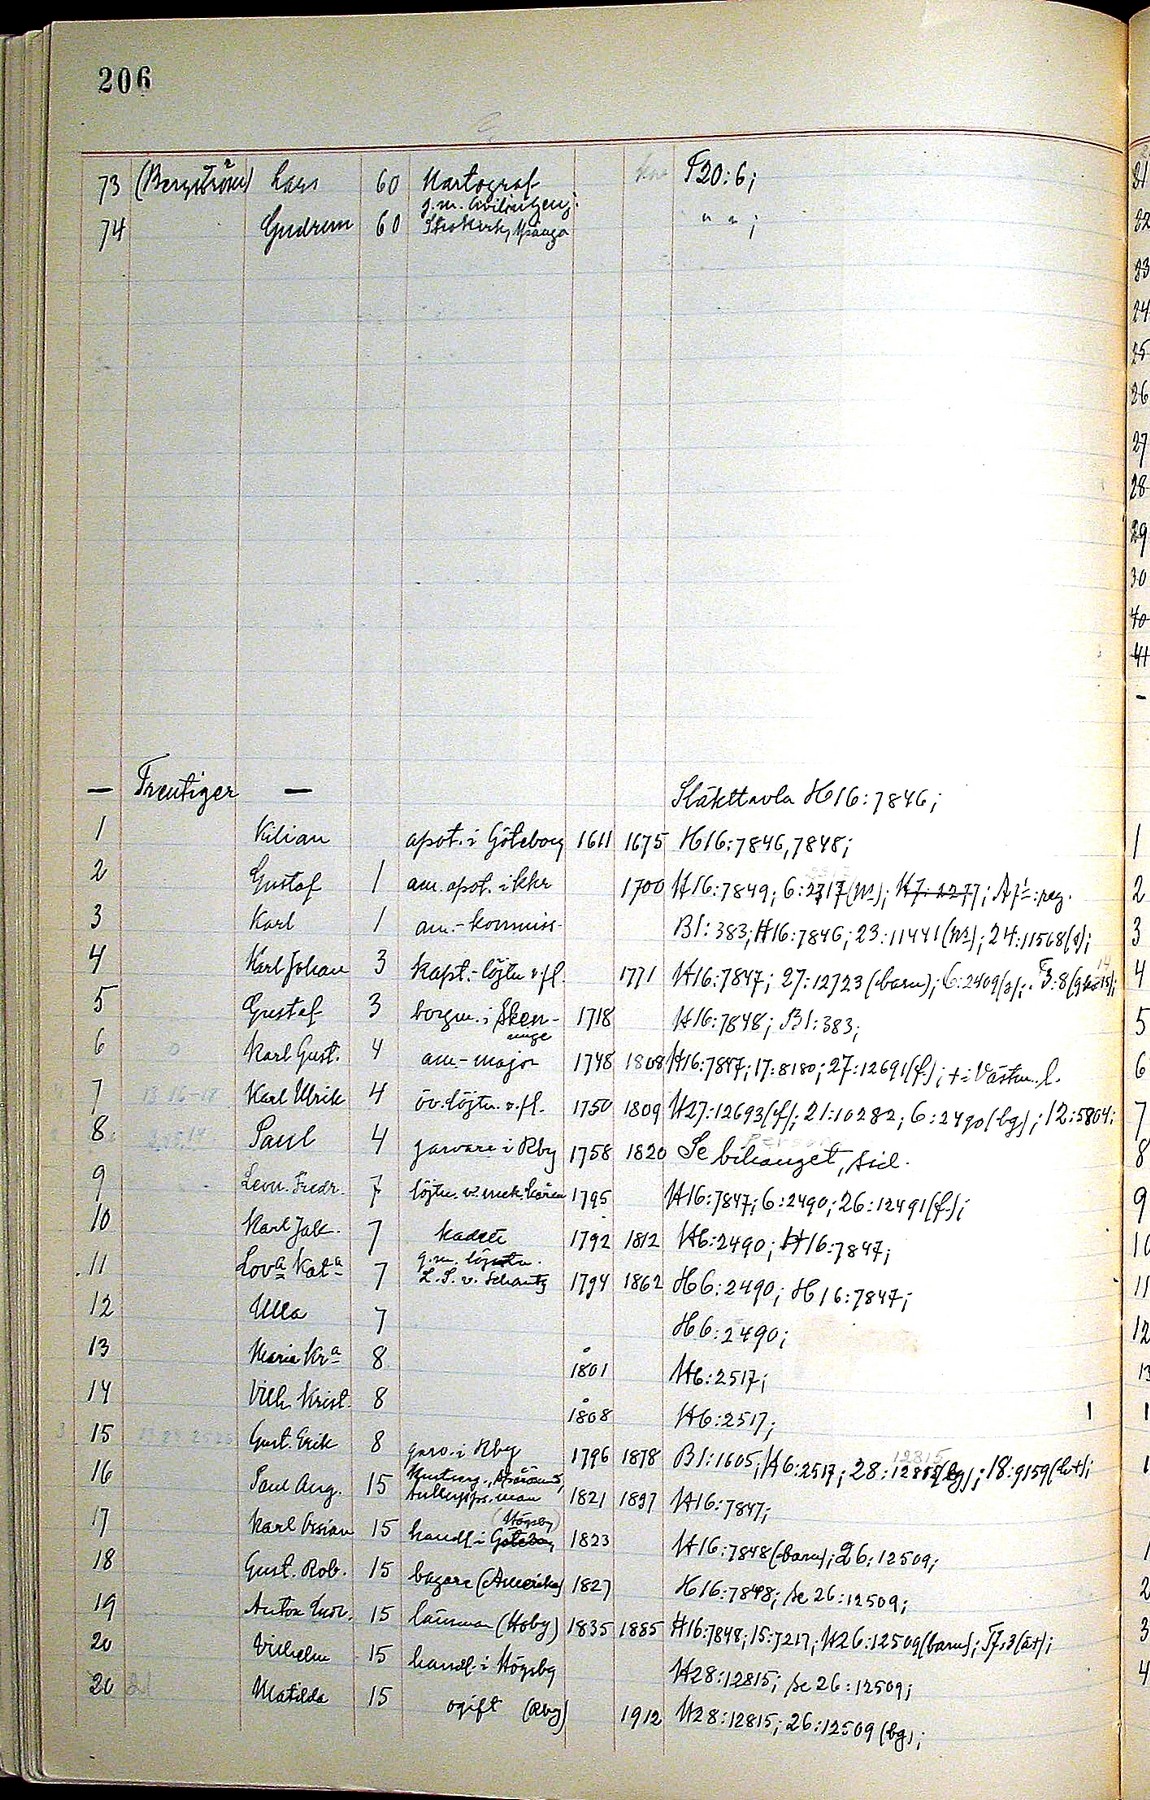 206
73 (Bergström) Lars 60 Kartograf F20:6;
g.m. Civilingenj.
74 Gudrun 60 Spånga " " ;
— Treutiger — Släkttavla H16:7846;
1 Kilian apot. i Göteborg 1611 1675 H16:7846, 7848;
2 Gustaf 1 am. apot. i kkr 1700 H16:7849; 6:2317(ms); H7:1277; reg.
3 Karl 1 am.-kommiss. B1:383; H16:7846; 23:11441(ms); 24:11568(s);
4 Karl Johan 3 kapt.-löjtn v. fl. 1771 H16:7847; 27:12723(barn); 6:2409(s);
5 Gustaf 3 borgm. i Sken- 1718 H16:7848; B1:383;
inge
6 Karl Gust. 4 am.-major 1748 1808 H16:7847; 17:8180; 27:12691(f.); + i Västm. l.
7 Karl Ulrik 4 öv. löjtn. v. fl. 1750 1809 H27:12693(f); 21:10282; 6:2490(bg); 12:5804;
8 Paul 4 garvare i Rby 1758 1820 Se bihanget, sid.
9 Leon. Fredr. 7 löjtn. v. mek. kåren 1795 H16:7847; 6:2490; 26:12491(f.);
10 Karl Jak. 7 kadett 1792 1812 H6:2490; H16:7847;
g.m. löjtn.
11 Lova Kata 7 L. P. v. Schantz 1794 1862 H6:2490; H16:7847;
12 Ulla 7 H6:2490;
13 Maria Kra 8 1801 H6:2517;
14 Vilh. Krist. 8 1808 H6:2517; 1
15 Gust. Erik 8 garv. i Rby 1796 1878 B1:1605; H6:2517; 28:12815(bg); 18:9159(lot);
16 Paul Aug. 15 1821 1897 H16:7847;
(Högsby)
17 Karl Ossian 15 handl. i Göteborg 1823 H16:7848(barn); 26:12509;
18 Gust. Rob. 15 bagare (Amerika) 1827 H16:7848; se 26:12509;
19 Anton Ludv. 15 länsman (Hoby) 1835 1885 H16:7848; 15:7217; H26:12509(barn); F7:3(ät);
20 Vilhelm 15 handl. i Högsby H28:12815; se 26:12509;
20 Matilda 15 ogift (Rby) 1912 H28:12815; 26:12509(bg);